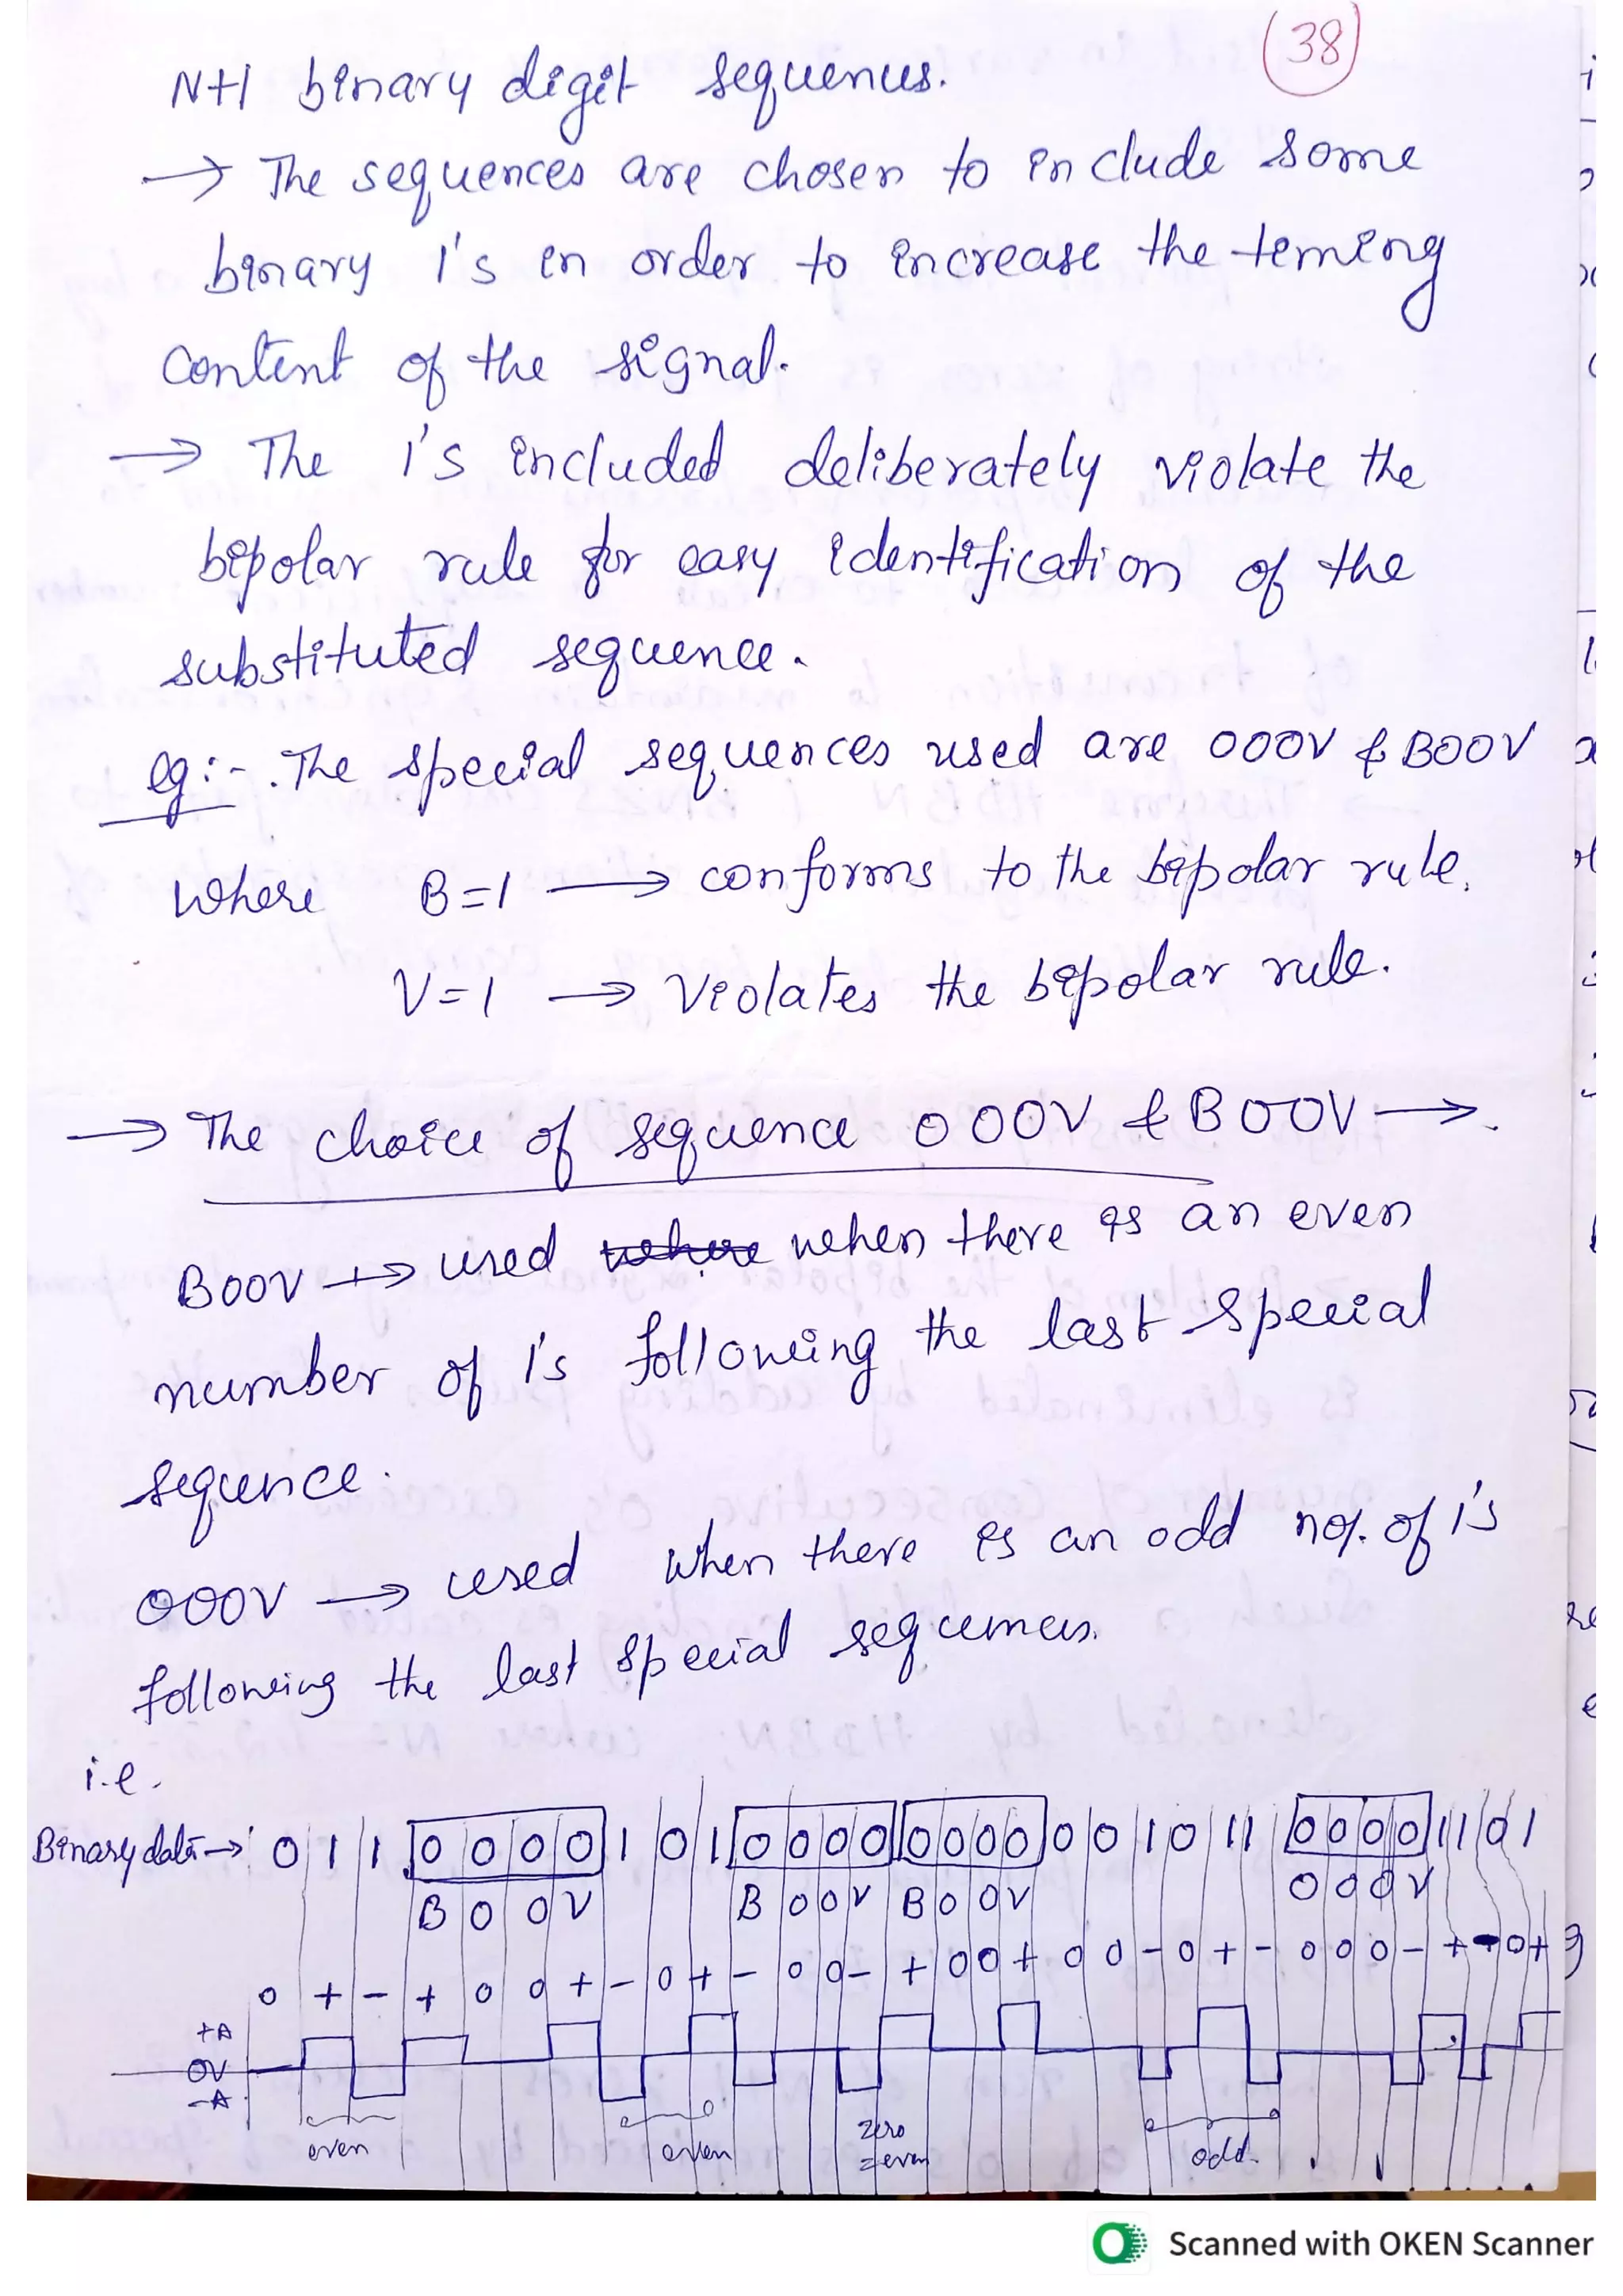 38
N+1 binary digit sequences.
→ The sequences are chosen to include some
binary 1's in order to increase the timing
content of the signal.
→ The 1's included deliberately violate the
bipolar rule for easy identification of the
substituted sequence.
eg:- .The special sequences used are 000V & B00V
where B=1 → conforms to the bipolar rule.
V=1 → Violates the bipolar rule.
→ The choice of sequence 000V & B00V →.
B00V → used when there is an even
number of 1's following the last special
sequence.
000V → used when there is an odd no. of 1's
following the last special sequences.
i.e.
Binary data → 0 1 1 0 0 0 0 1 0 1 0 0 0 0 0 0 0 0 0 0 1 0 1 1 0 0 0 0 1 1 0 1
B 0 0 V B 0 0 V B 0 0 V 0 0 0 V
0 + - + 0 0 + - 0 + - 0 0 - + 0 0 + 0 0 - 0 + - 0 0 0 - + - 0 +
+A
0V
-A
even even zero odd
= even
Scanned with OKEN Scanner